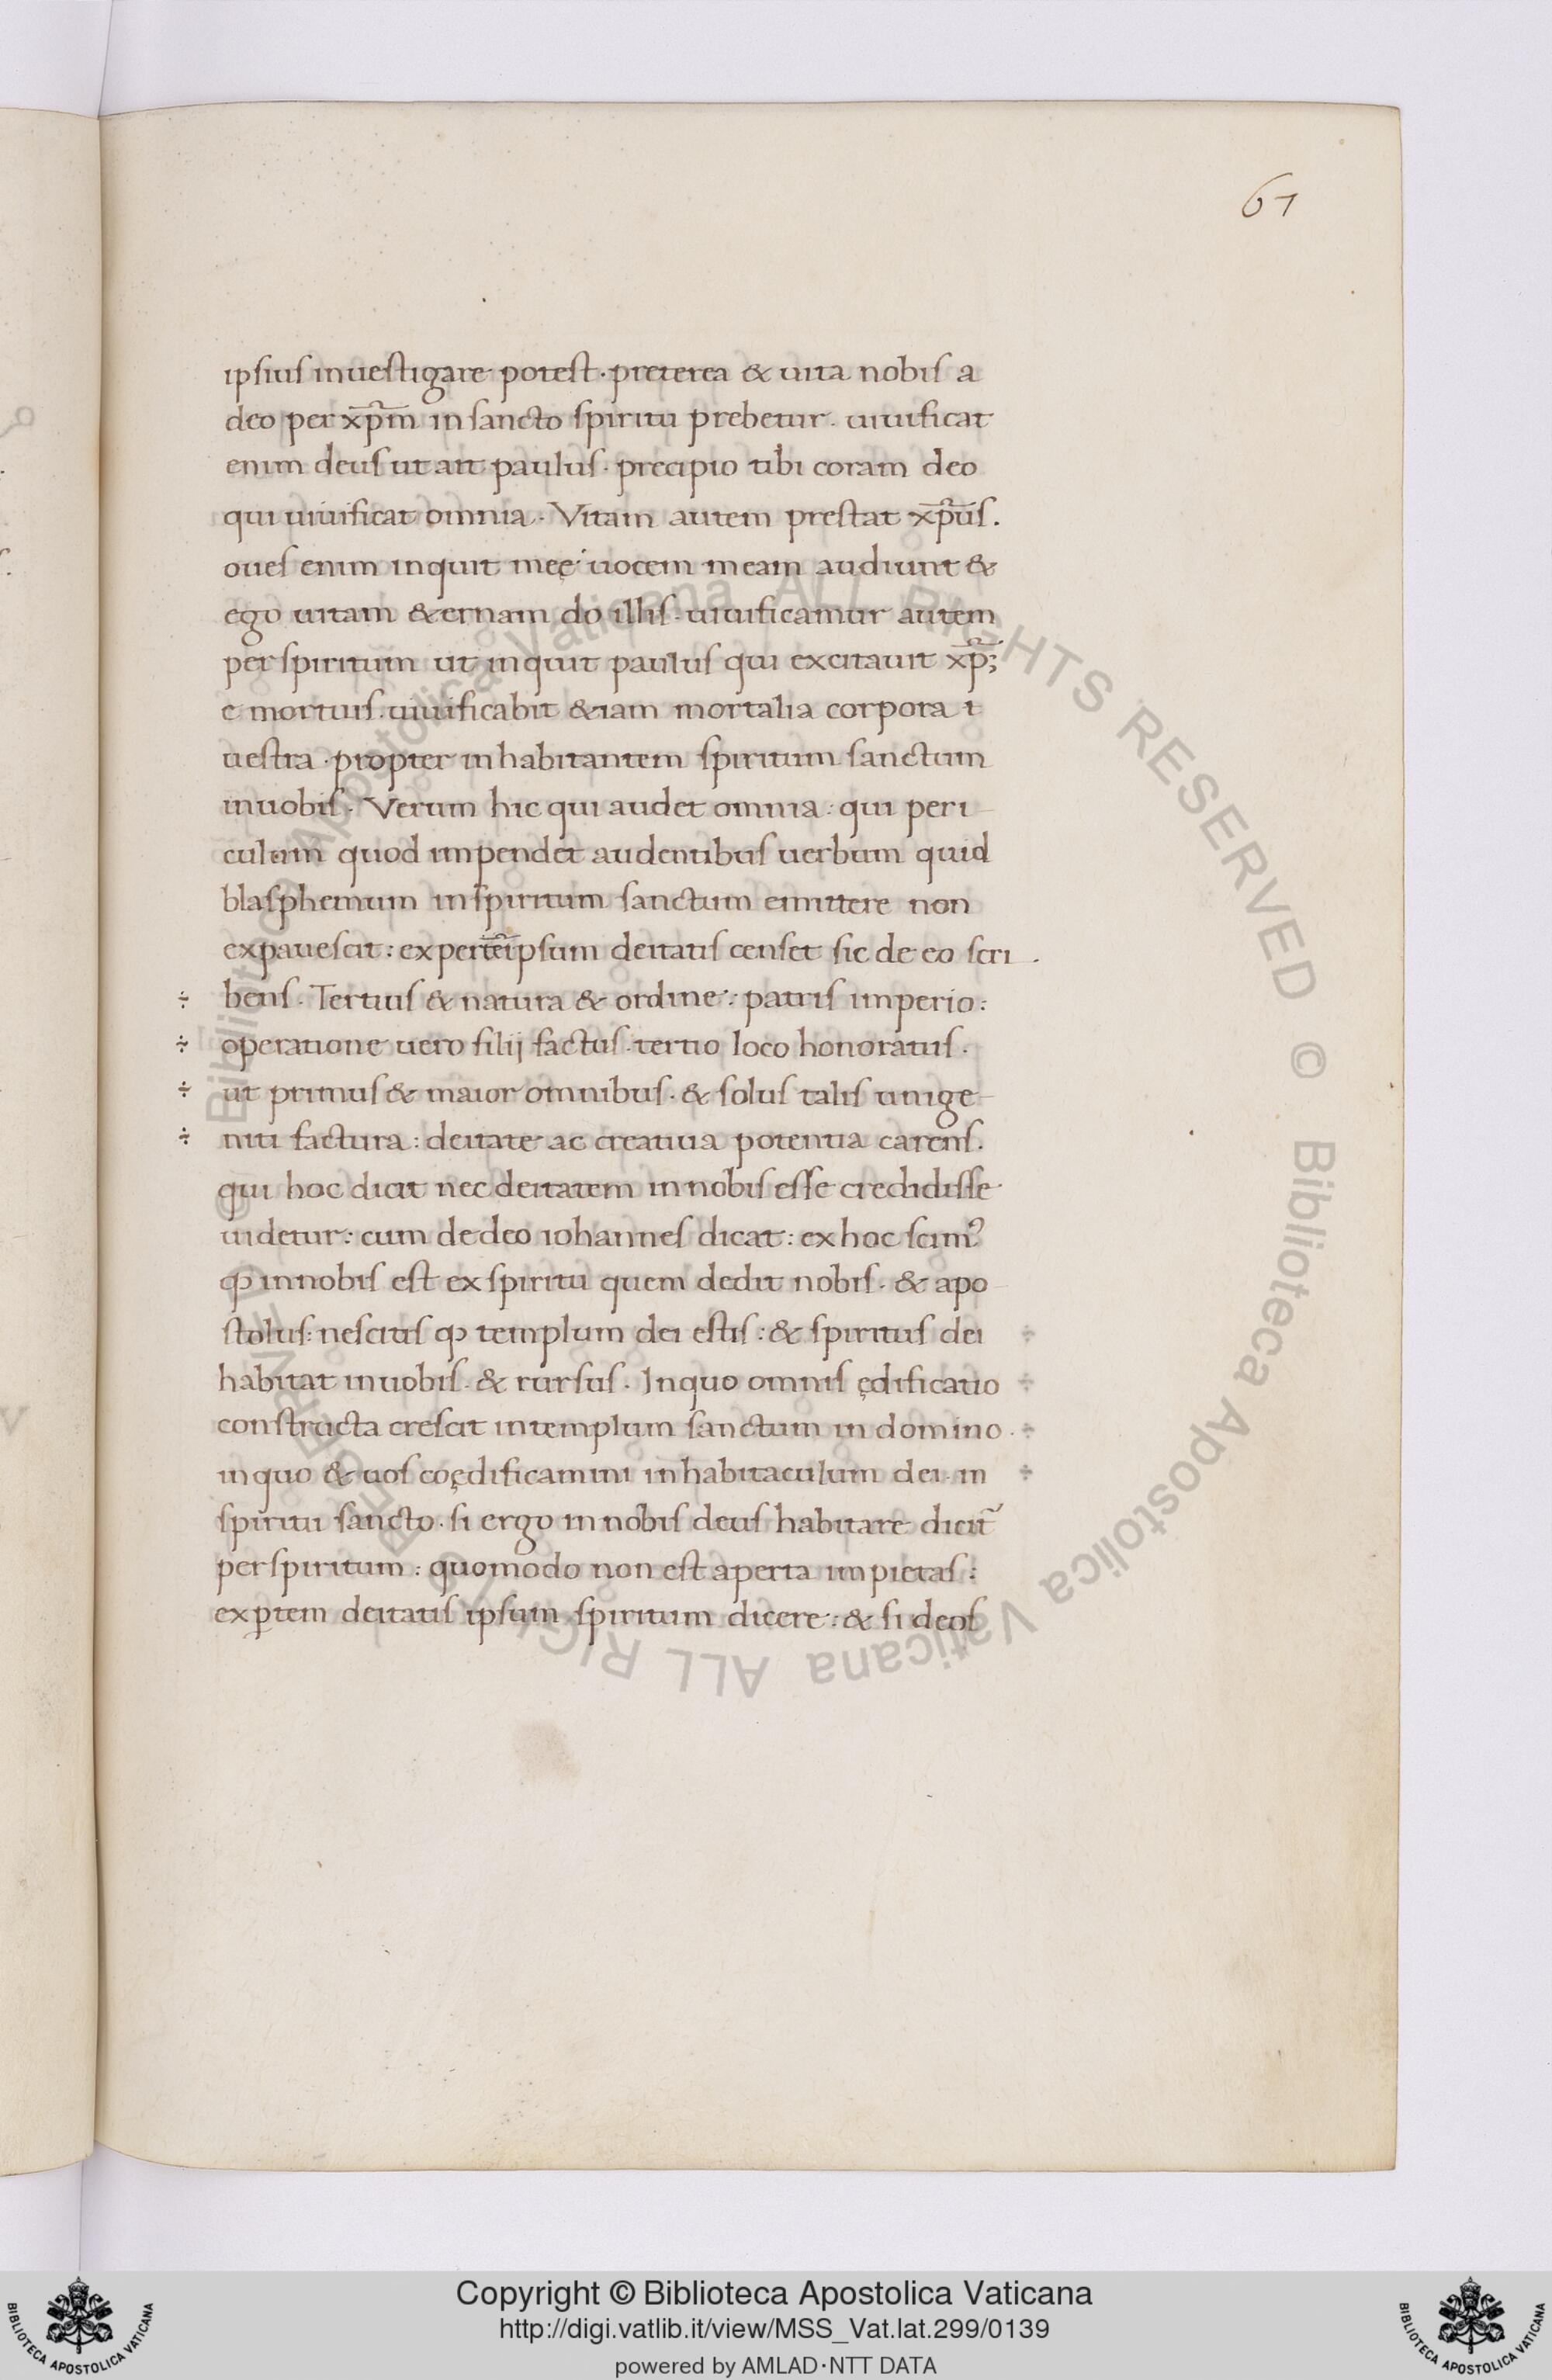 61
ipsius inuestigare potest. preterea & uita nobis a
deo per xp̄m in sancto spiritu prebetur. uiuificat
enim deus ut ait paulus. precipio tibi coram deo
qui uiuificat omnia. Vitam autem prestat xp̄us.
oues enim inquit meę uocem meam audiunt &
ego uitam &ernam do illis. uiuificamur autem
per spiritum ut inquit paulus qui excitauit xp̄;
e mortuis. uiuificabit &iam mortalia corpora i
uestra. propter inhabitantem spiritum sanctum
in uobis. Verum hic qui audet omnia: qui peri
culum quod impendet audentibus uerbum quid
blasphemum in spiritum sanctum emittere non
expauescit: expertē ipsum deitatis censet sic de eo scri
÷ bens. Tertius & natura & ordine: patris imperio:
÷ operatione uero filij factus. tertio loco honoratus.
÷ ut primus & maior omnibus. & solus talis unige
÷ niti factura: deitate ac creatiua potentia carens.
qui hoc dicit nec deitatem in nobis esse credidisse
uidetur: cum de deo iohannes dicat: ex hoc scimꝰ
ꝙ in nobis est ex spiritu quem dedit nobis. & apo
stolus: nescitis ꝙ templum dei estis: & spiritus dei ÷
habitat in uobis. & rursus. In quo omnis ędificatio ÷
constructa crescit in templum sanctum in domino. ÷
in quo & uos coędificamini in habitaculum dei. in ÷
spiritu sancto. si ergo in nobis deus habitare dicit̃
per spiritum: quomodo non est aperta impietas:
exꝑtem deitatis ipsum spiritum dicere: & si deos
Copyright © Biblioteca Apostolica Vaticana
http://digi.vatlib.it/view/MSS_Vat.lat.299/0139
powered by AMLAD·NTT DATA
BIBLIOTECA APOSTOLICA VATICANA
BIBLIOTECA APOSTOLICA VATICANA
© Biblioteca Apostolica Vaticana ALL RIGHTS RESERVED © Biblioteca Apostolica Vaticana ALL RIGHTS RESERVED